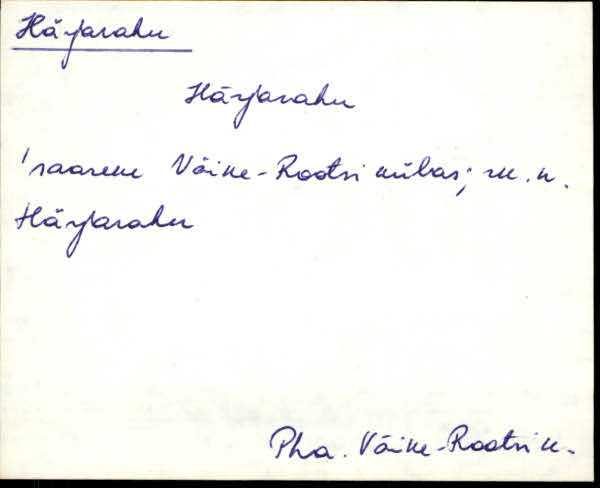 Härjarahu
Härjarahu
'saareke Väike-Rootsi külas; rk. n.
Härjarahu
Pha. Väike-Rootsi k.